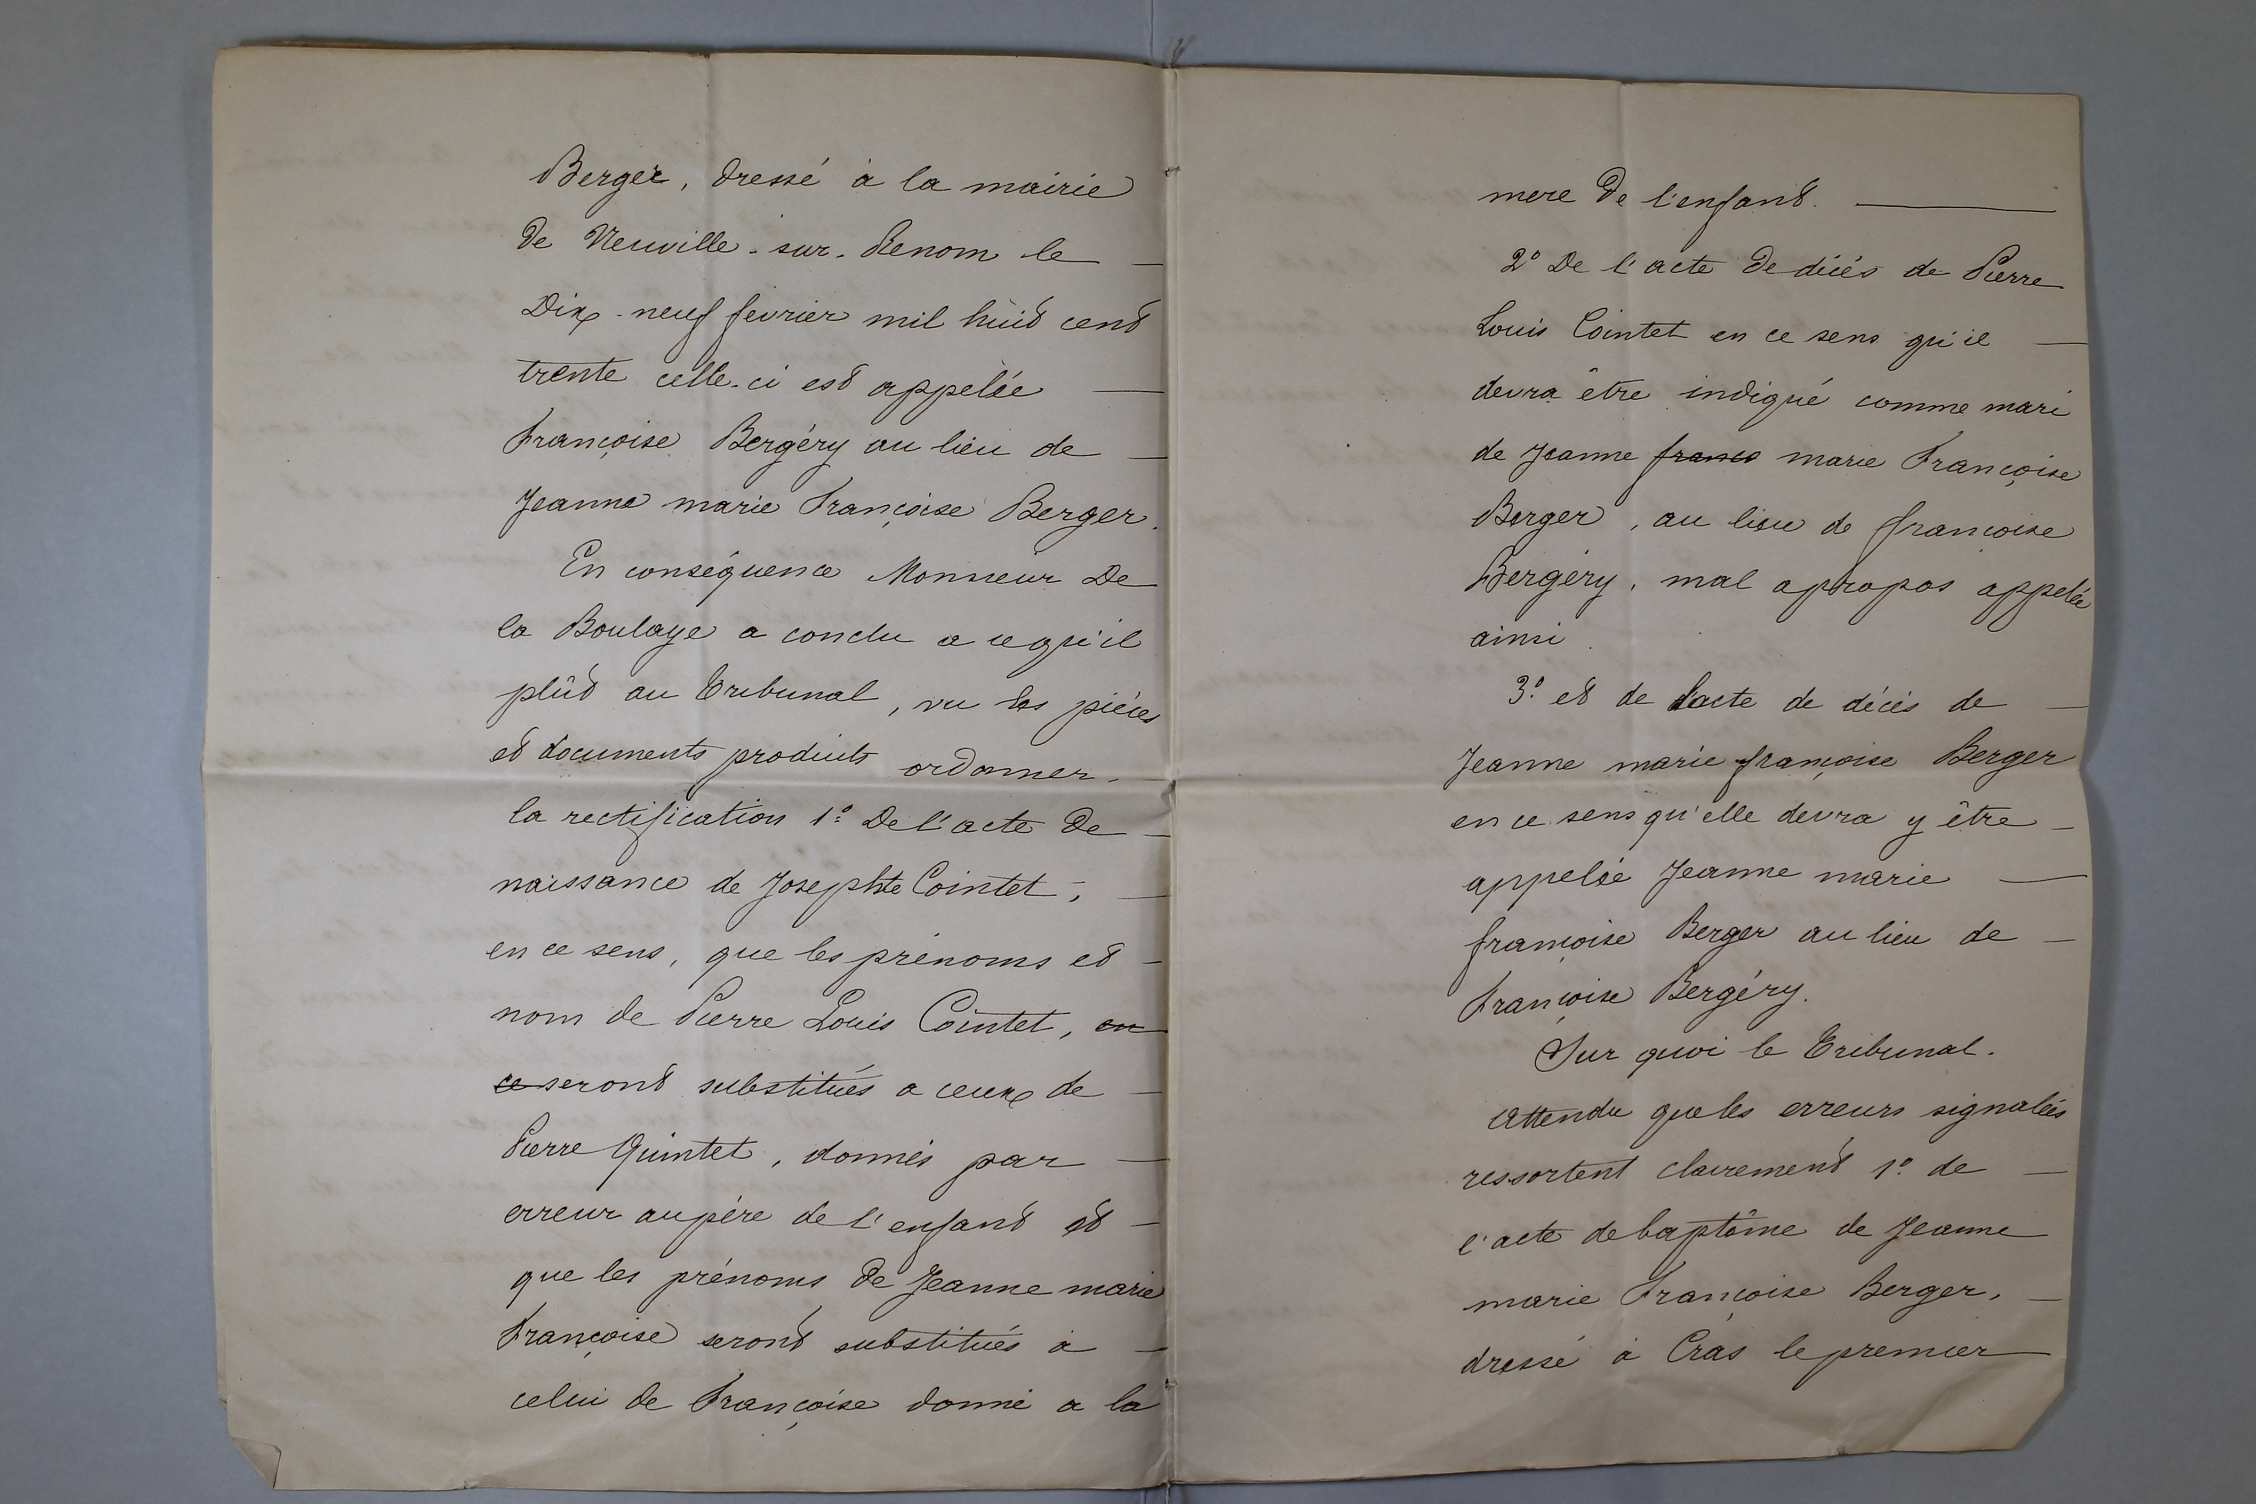 Berger, dressé à la mairie
de Neuville-sur-Renom le
Dix-neuf fevrier mil huit cent
trente celle-ci est appelée
Françoise Bergéry au lieu de
Jeanne marie Françoise Berger.
En conséquence Monsieur De
la Boulaye a conclu a ce qu'il
plût au Tribunal, vu les pièces
et documents produits ordonner
la rectification 1° De l'acte De
naissance de Josephte Cointet,
en ce sens, que les prénoms et
nom de Pierre Louis Cointet, en
ce seront substitués a ceux de
Pierre Quintet, donnés par
erreur au père de l'enfant et
que les prénoms de Jeanne marie
Françoise seront substitués à
celui de Françoise donné a la
mere de l'enfant.
2° De l'acte de décés de Pierre
Louis Cointet en ce sens qu'il
devra être indiqué comme mari
de Jeanne franco marie Françoise
Berger, au lieu de françoise
Bergéry, mal apropos appelée
ainsi.
3° et de l'acte de décès de
Jeanne marie françoise Berger
en ce sens qu'elle devra y être
appelée Jeanne marie
françoise Berger au lieu de
Françoise Bergéry.
Sur quoi le Tribunal.
Attendu que les erreurs signalées
ressortent clairement 1° de
l'acte de baptême de Jeanne
marie Françoise Berger,
dressé à Cras le premier